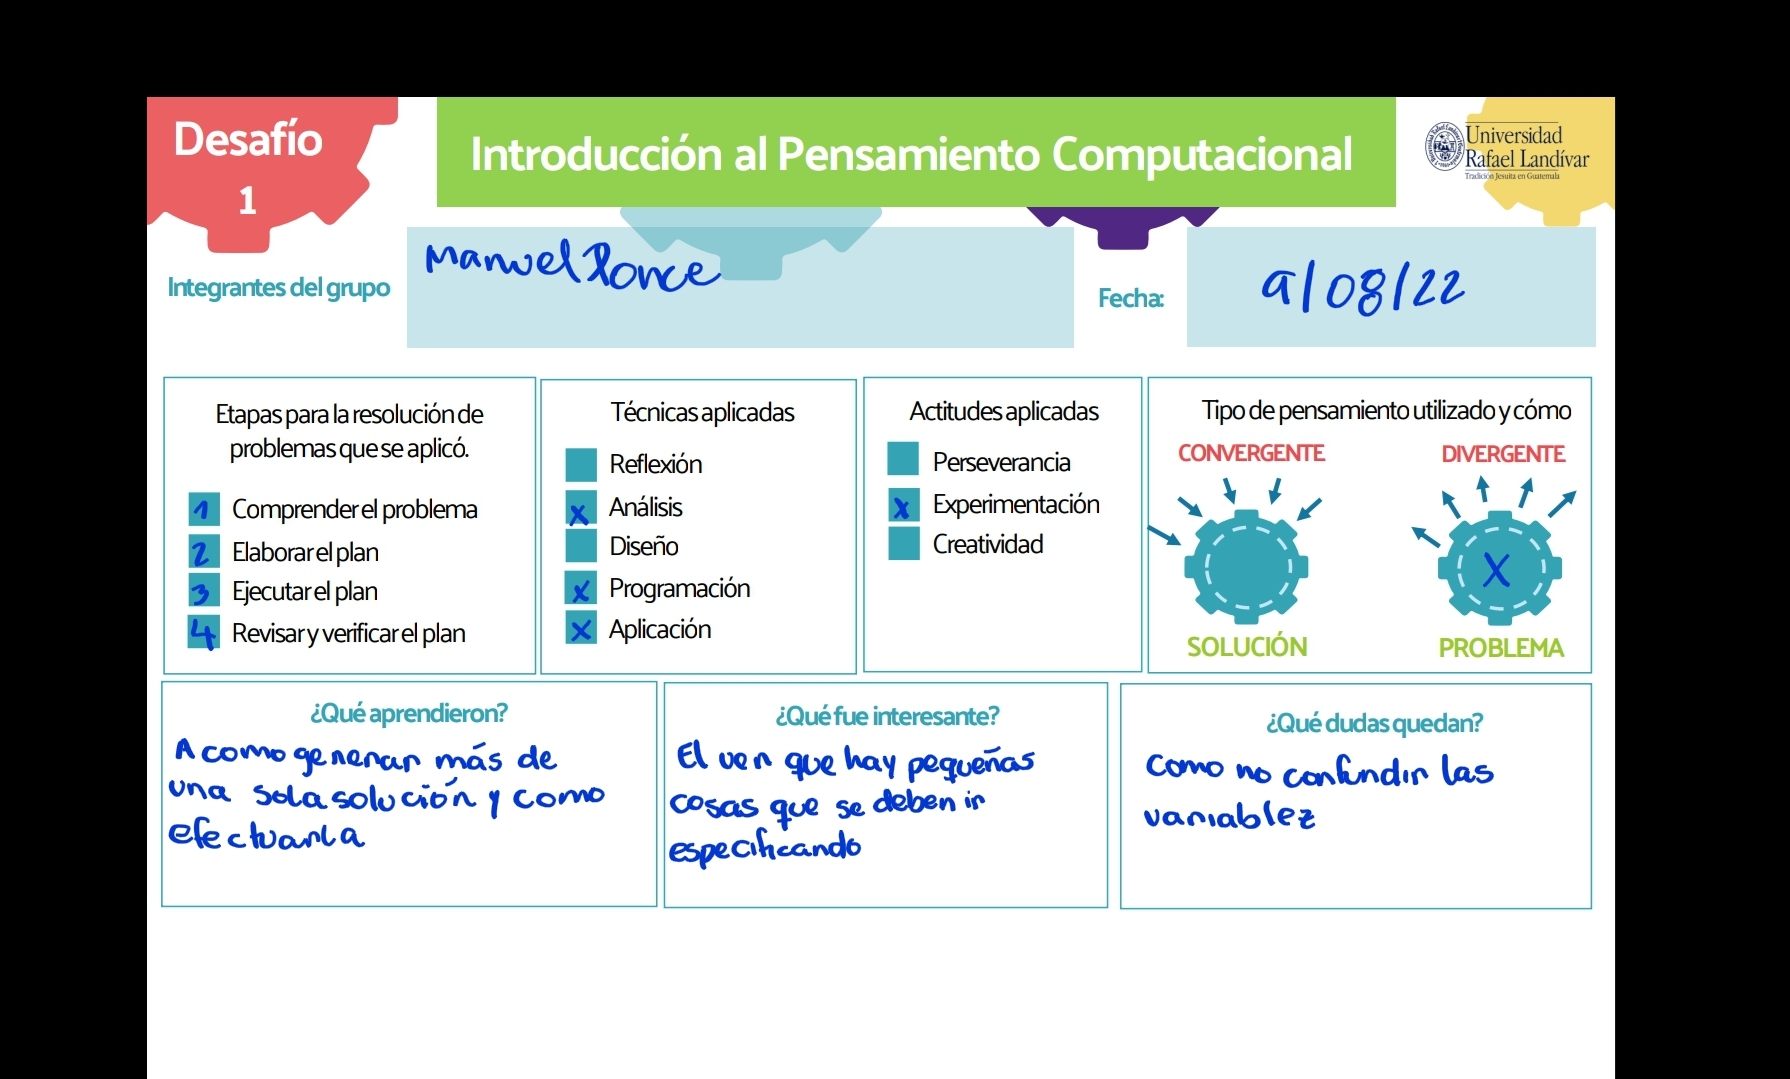 Desafío
1
Introducción al Pensamiento Computacional
Universidad
Rafael Landívar
Tradición Jesuita en Guatemala
Integrantes del grupo
Manuel Ponce
Fecha:
9/08/22
Etapas para la resolución de
problemas que se aplicó.
1 Comprender el problema
2 Elaborar el plan
3 Ejecutar el plan
4 Revisar y verificar el plan
Técnicas aplicadas
Reflexión
x Análisis
Diseño
x Programación
x Aplicación
Actitudes aplicadas
Perseverancia
x Experimentación
Creatividad
Tipo de pensamiento utilizado y cómo
CONVERGENTE
SOLUCIÓN
DIVERGENTE
X
PROBLEMA
¿Qué aprendieron?
A como generar más de
una sola solución y como
efectuarla
¿Qué fue interesante?
El ver que hay pequeñas
cosas que se deben ir
especificando
¿Qué dudas quedan?
Como no confundir las
variablez